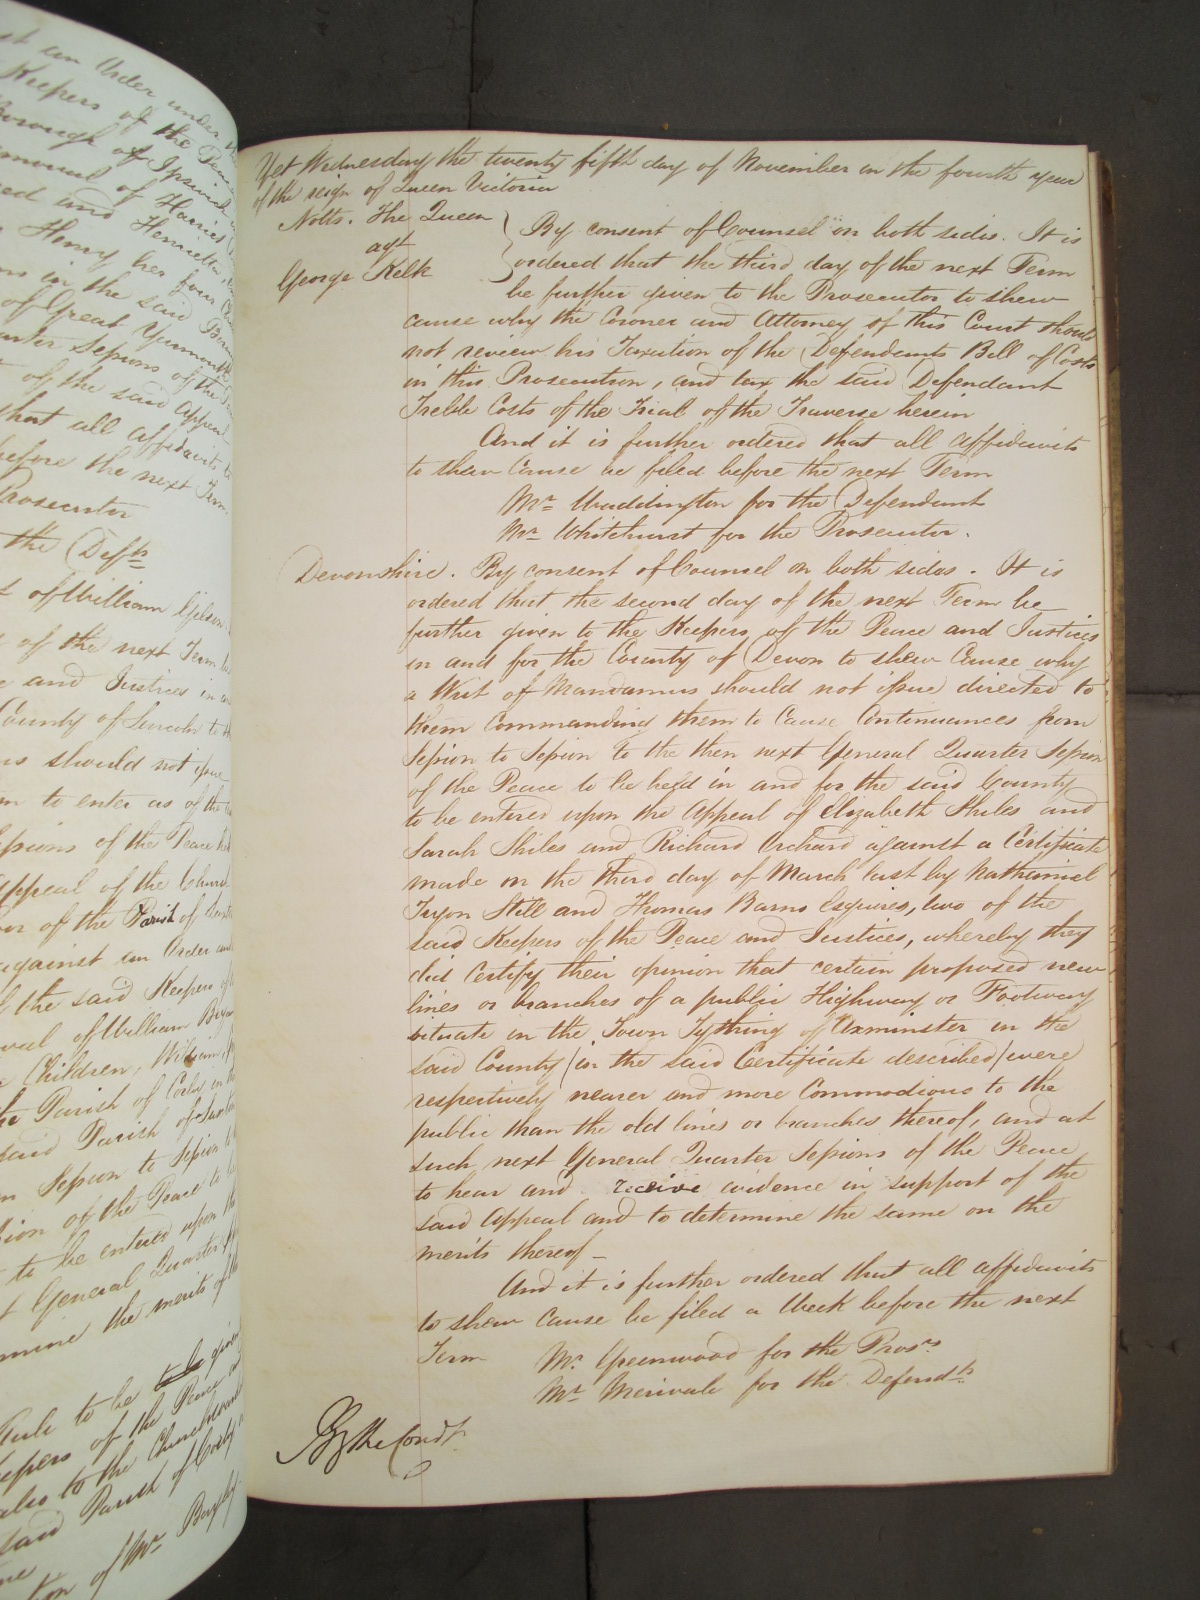 st an Order under
Keepers of the Peace
Borough of Ipswich
removal of Harriet
and Henrietta
Henry her four
in the said
of Great Yarmouth
Quarter Sessions of the
of the said Appeal
that all affidavits to
before the next Term
Prosecutor
the Defts
of William Gilson
of the next Term be
and Justices in
County of Lincoln to
should not issue
to enter as of the
Sessions of the Peace
Appeal of the Church
of the Parish of
against an Order
the said Keepers of
of William
Children, William
the Parish of Corby in the
said Parish of
Session to Session
of the Peace to
to be entered upon the
General Quarter
the merits of the
Rule to be to be given
Keepers of the Peace
also to the Churchwardens
said Parish of Corby
of Mr. Bayley
Yet Wednesday the twenty fifth day of November in the fourth year
of the reign of Queen Victoria
Notts. The Queen
agt
George Kelk
By consent of Counsel on both sides. It is
ordered that the third day of the next Term
be further given to the Prosecutor to shew
cause why the Coroner and Attorney of this Court should
not review his Taxation of the Defendants Bill of Costs
in this Prosecution, and tax the said Defendant
Treble Costs of the Trial of the Traverse herein
And it is further ordered that all affidavits
to shew Cause be filed before the next Term
Mr. Waddington for the Defendant
Mr. Whitehurst for the Prosecutor.
Devonshire. By consent of Counsel on both sides. It is
ordered that the second day of the next Term be
further given to the Keepers of the Peace and Justices
in and for the County of Devon to shew Cause why
a Writ of Mandamus should not issue directed to
them Commanding them to Cause Continuances from
Session to Session to the then next General Quarter Session
of the Peace to be held in and for the said County
to be entered upon the Appeal of Elizabeth Stiles and
Sarah Stiles and Richard Orchard against a Certificate
made on the third day of March last by Nathaniel
Tryon Still and Thomas Barns Esquires, two of the
said Keepers of the Peace and Justices, whereby they
did Certify their opinion that certain proposed new
lines or branches of a public Highway or Footway
situate in the Town Tything of Axminster in the
said County (in the said Certificate described) were
respectively nearer and more Commodious to the
public than the old lines or branches thereof, and at
such next General Quarter Sessions of the Peace
to hear and receive evidence in support of the
said Appeal and to determine the same on the
merits thereof -
And it is further ordered that all affidavits
to shew Cause be filed a Week before the next
Term
Mr. Greenwood for the Prosrs
Mr. Merivale for the Defendts.
By the Court.